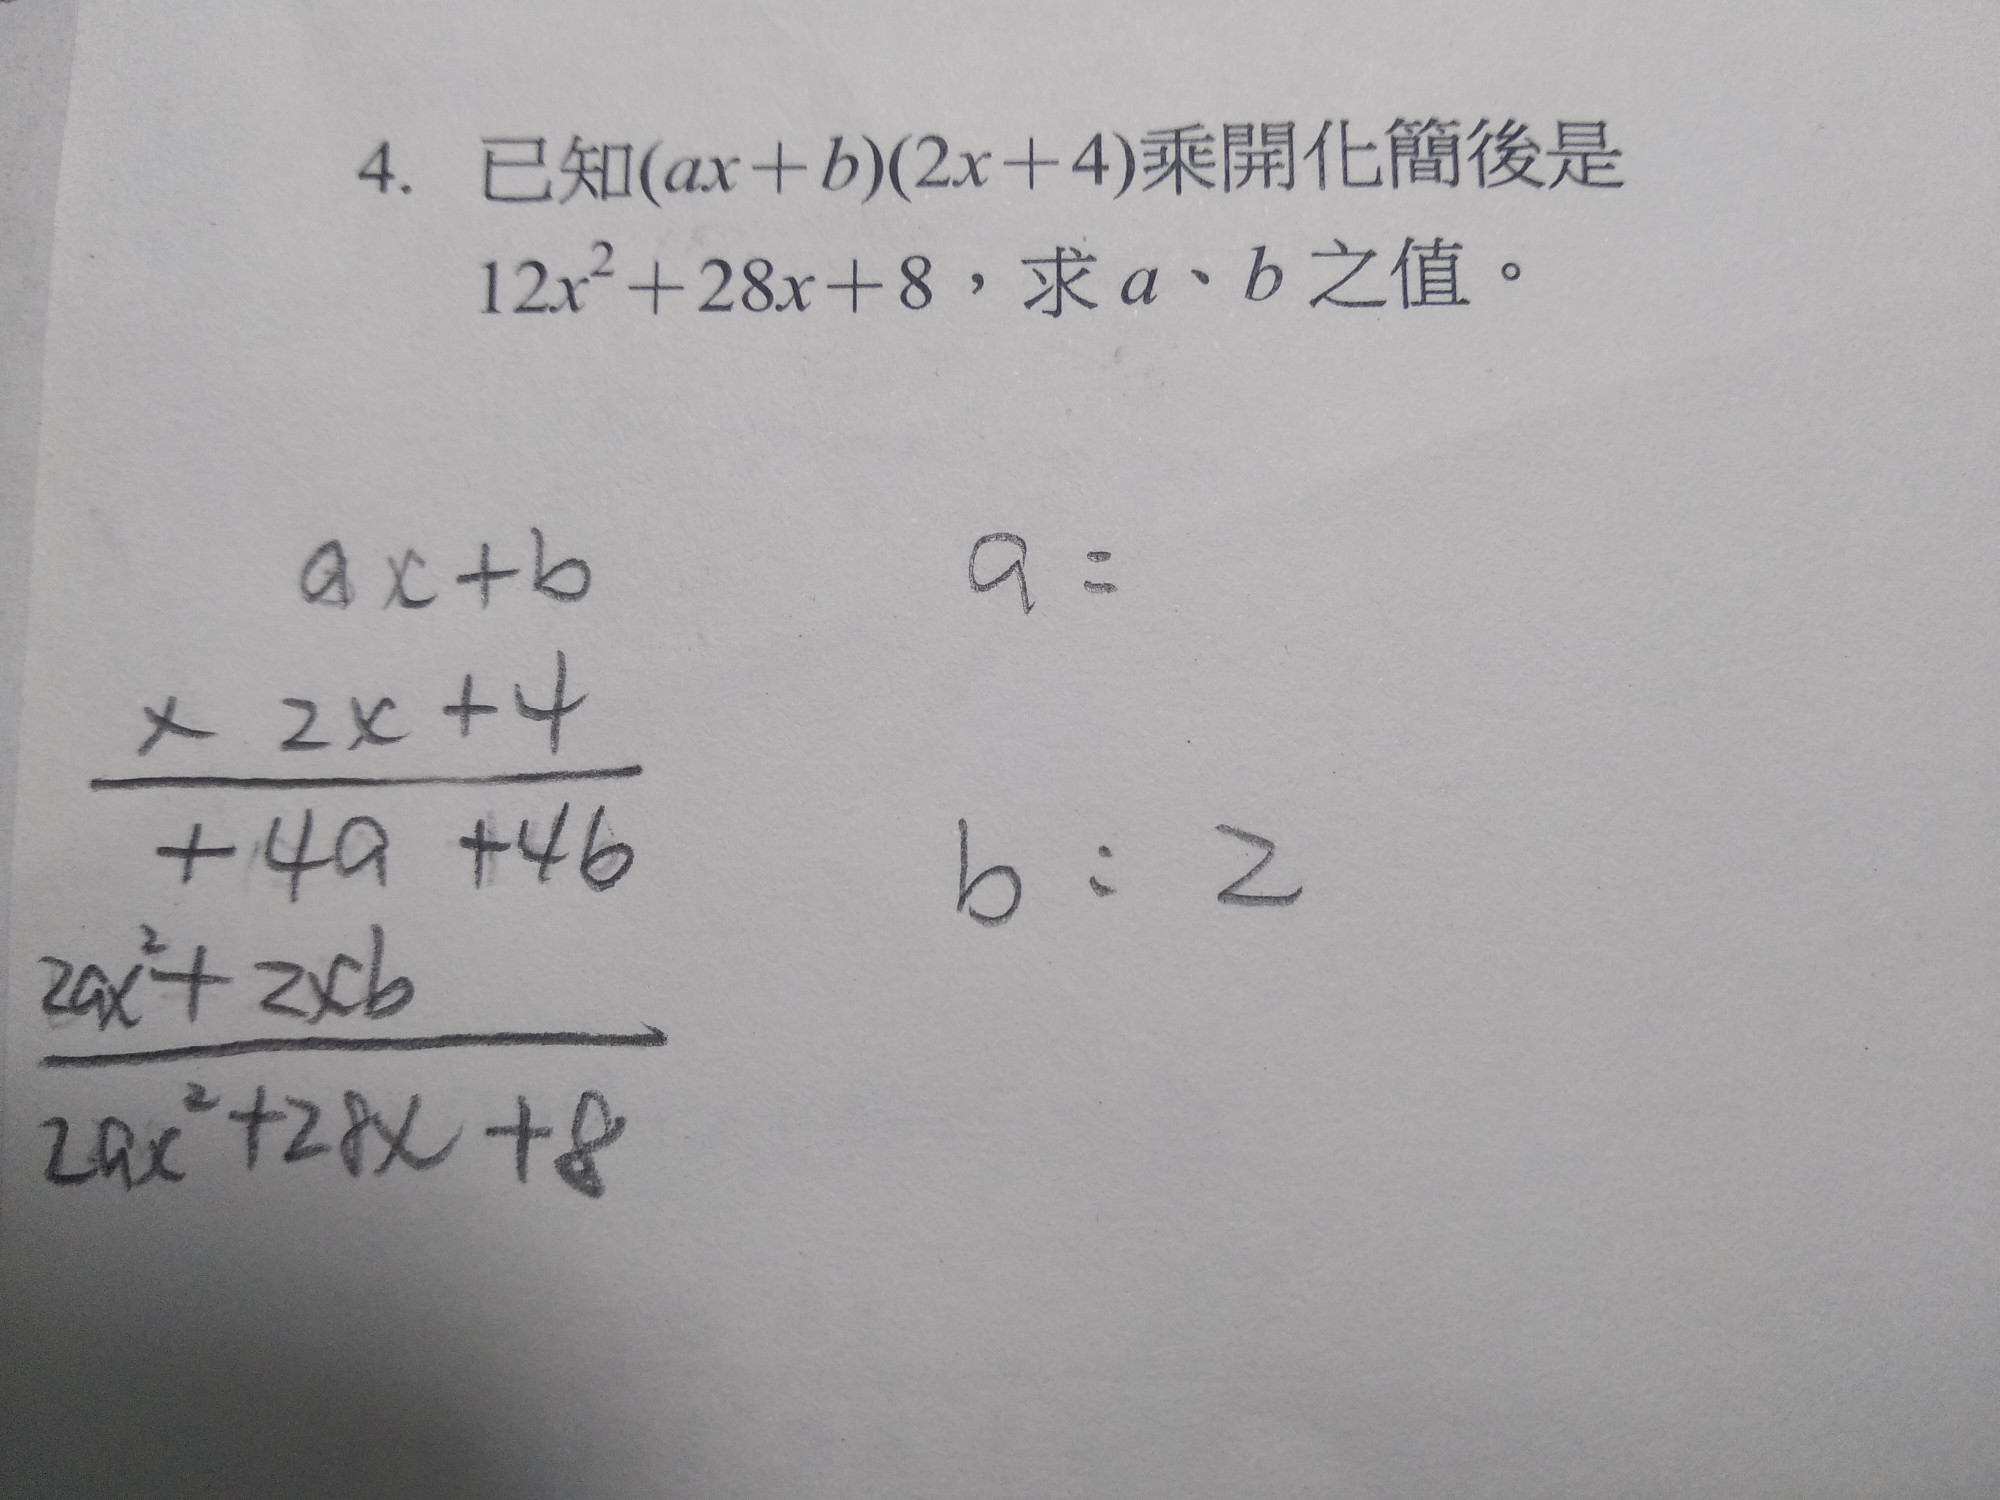 4. 已知(ax+b)(2x+4)乘開化簡後是
12x²+28x+8，求 a、b 之值。
ax+b
× 2x+4
+4a +4b
2ax²+2xb
2ax²+28x+8
a=
b: 2